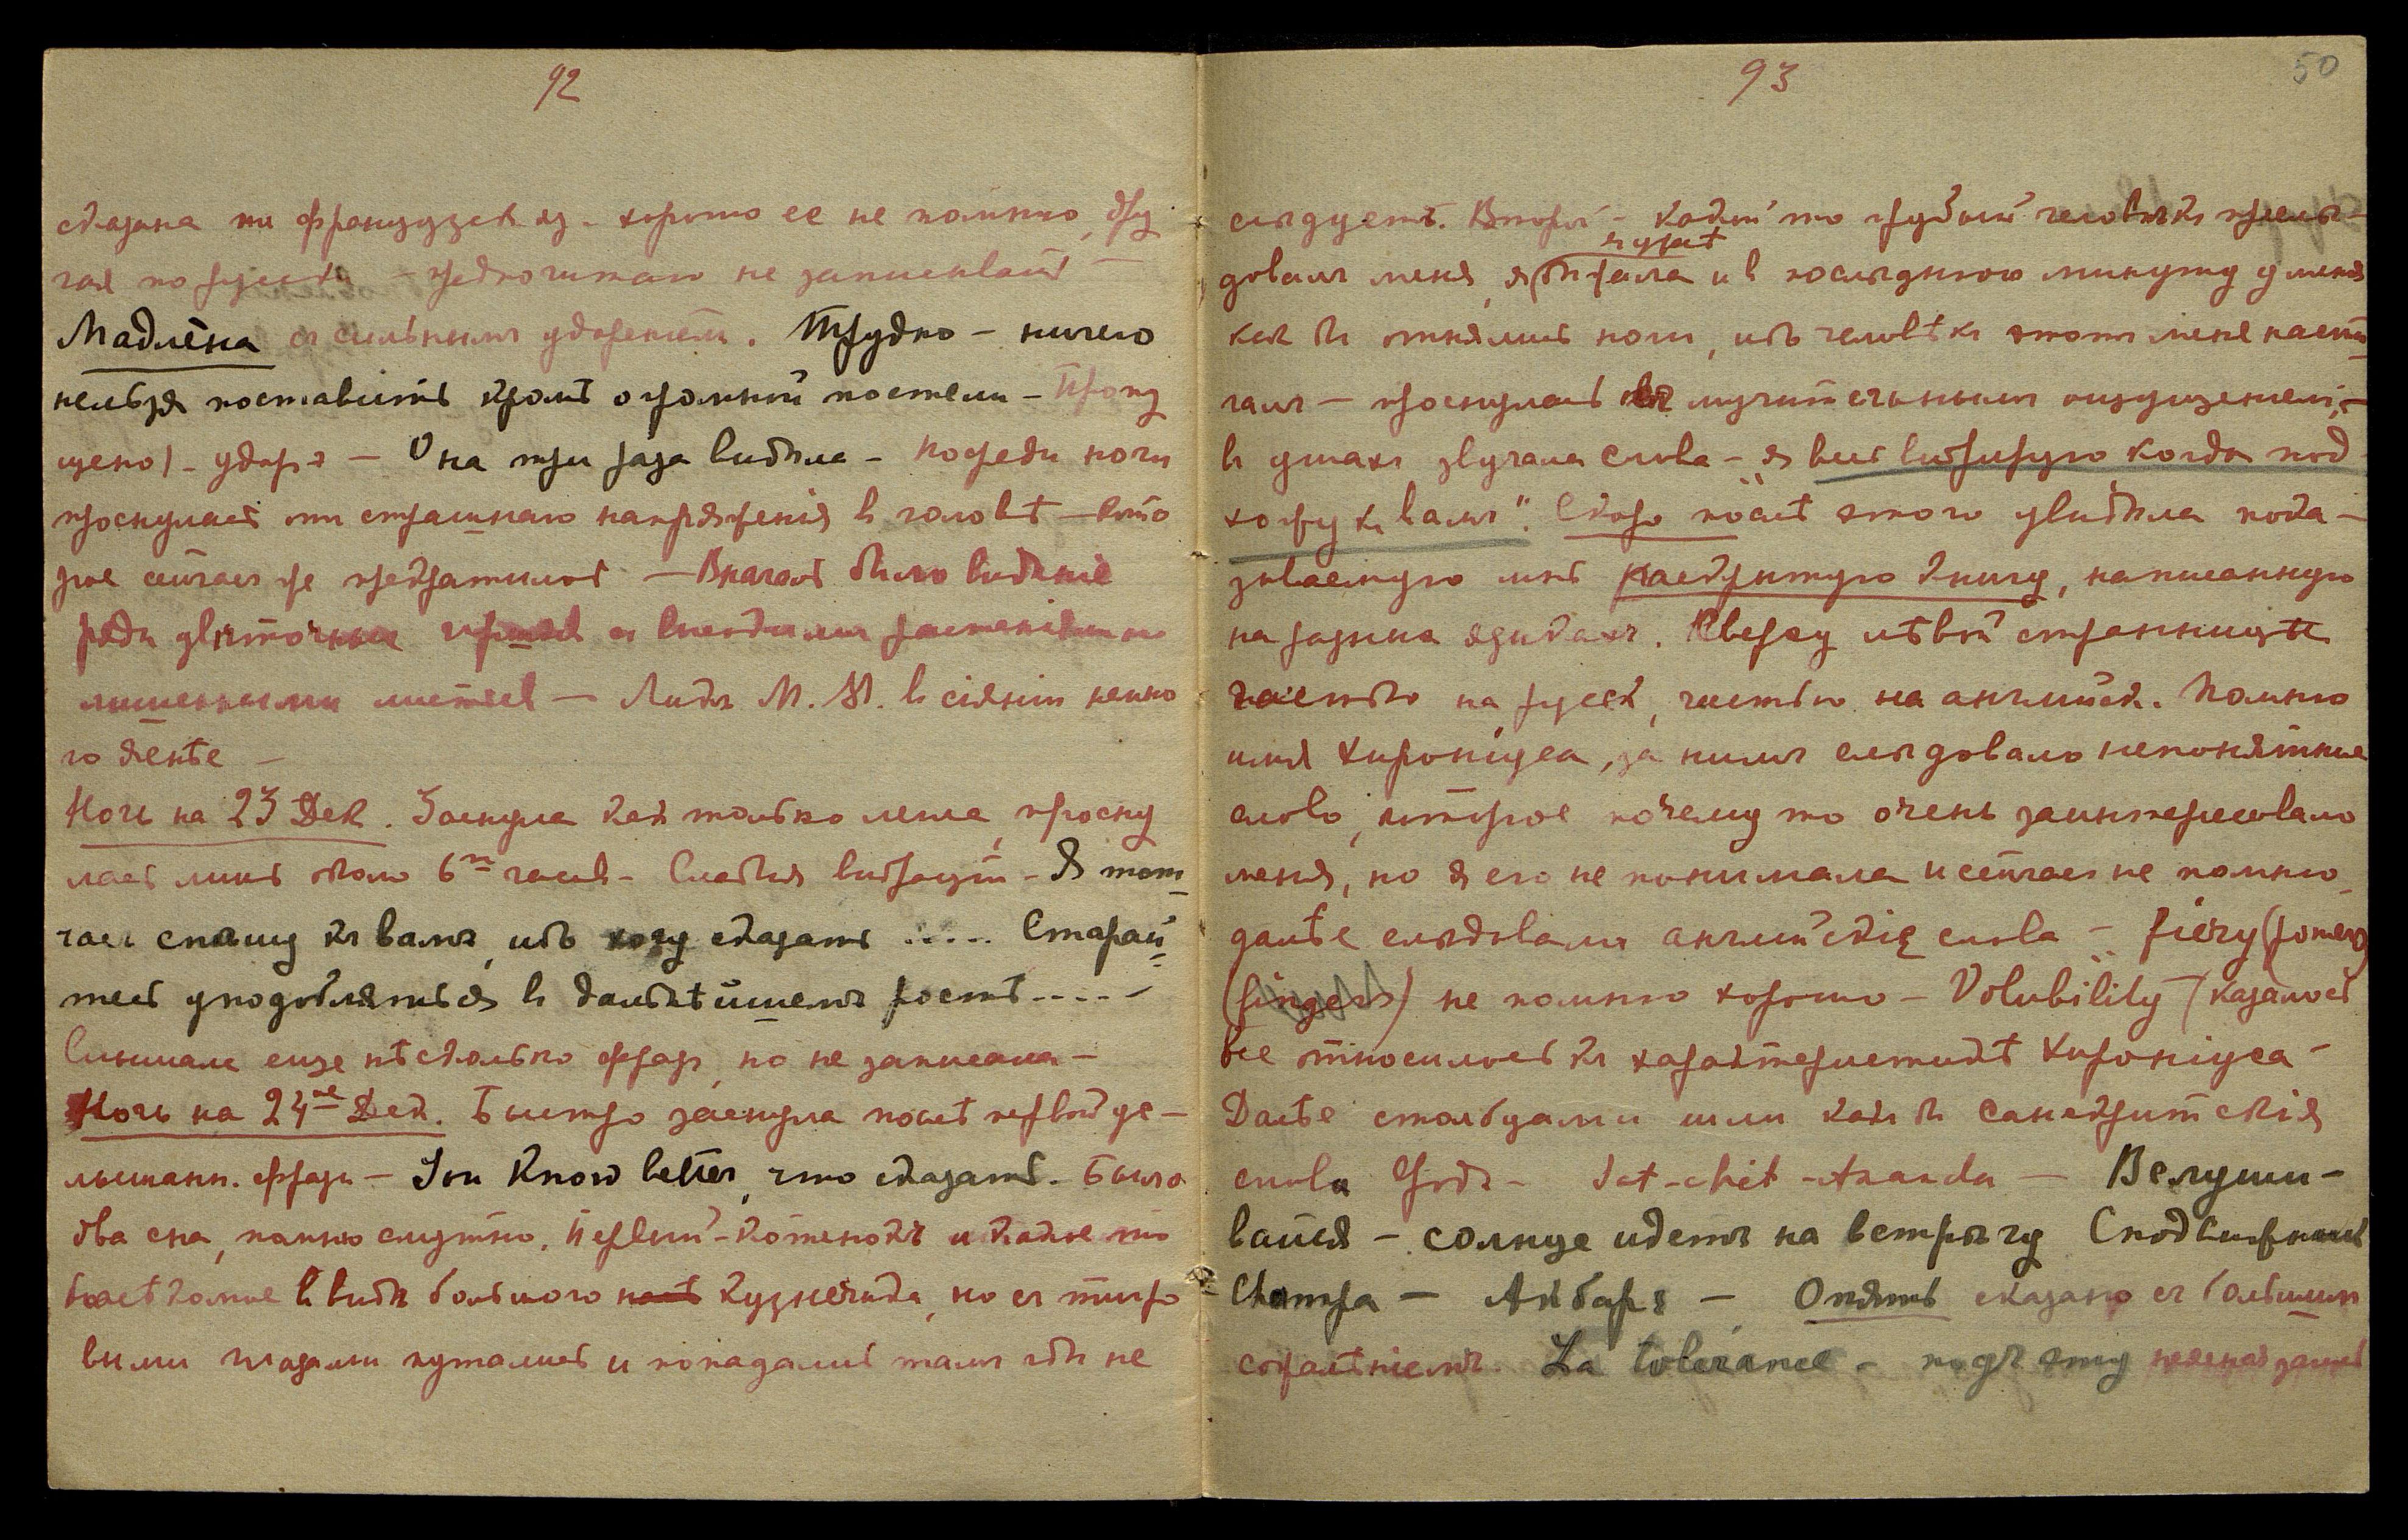 92
сказана на французск яз. хорошо ее не помню, дру
гая по русски – предпочитаю не записывать –
Мадлёна съ сильнымъ удареніем. Трудно – ничего
нельзя поставить кромѣ огромной постели –
удар – Она три раза видѣла – посреди ночи
проснулась от страшнаго напряженія в головѣ – кото
рое сейчас же прекратилось – Вначалѣ было видѣніе
ряды цвѣточных с растеніями
лишенными листьев – Ликъ М. М. в сіяніи немно
го яснѣе –
Ночь на 23 Дек. Заснула как только легла, просну
лась лишь около 6ти часов – Слабая вибрація – Я тот
час спѣшу къ вамъ, ибо хочу сказать ..... Старай
тесь уподобляться в дальнѣйшемъ ростѣ .....
Слышала еще нѣсколько фраз, но не записала –
Ночь на 24ое Дек. Быстро заснула послѣ первой у
слышанн. фразы – You Know better, что сказать. Было
два сна, помню смутно. Первый – котенокъ и какое то
насѣкомое в видѣ большого кузнечика, но съ тигро
выми глазами путались и попадались тамъ гдѣ не
93
50
слѣдуетъ. Второй – какой то грубый человѣкъ преслѣ
чуръ
довалъ меня, я бѣжала и в послѣднюю минуту у меня
как бы отнялись ноги, ибо человѣкъ этотъ меня насти
галъ – проснулась съ мучительнымъ ощущеніем, –
в ушахъ звучала слова – "я вся вибрирую когда под
хожу къ вамъ". Скоро послѣ этого увидѣла пока –
зываемую мнѣ раскрытую книгу, написанную
на разныхъ языкахъ. Кверху лѣвой странницы
частью на русск, частью на английск. Помню
имя Хироніуса, за нимъ слѣдовало непонятное
слово, которое почему то очень заинтересовало
меня, но я его не понимала и сейчас не помню,
далѣе слѣдовали английскіе слова – fiery (power)
(fingers) не помню хорошо – Volubility – (казалось
все относилось къ характеристикѣ Хироніуса –
Далѣе столбцами шли какъ бы санскритскія
слова вродѣ – Sat-chit-Ananda – Вслуши –
вайся – солнце идетъ на встрѣчу Сподвижникъ
Chatra – Акбаръ – Опять сказано съ большим
сожалѣніемъ. La tolérance –